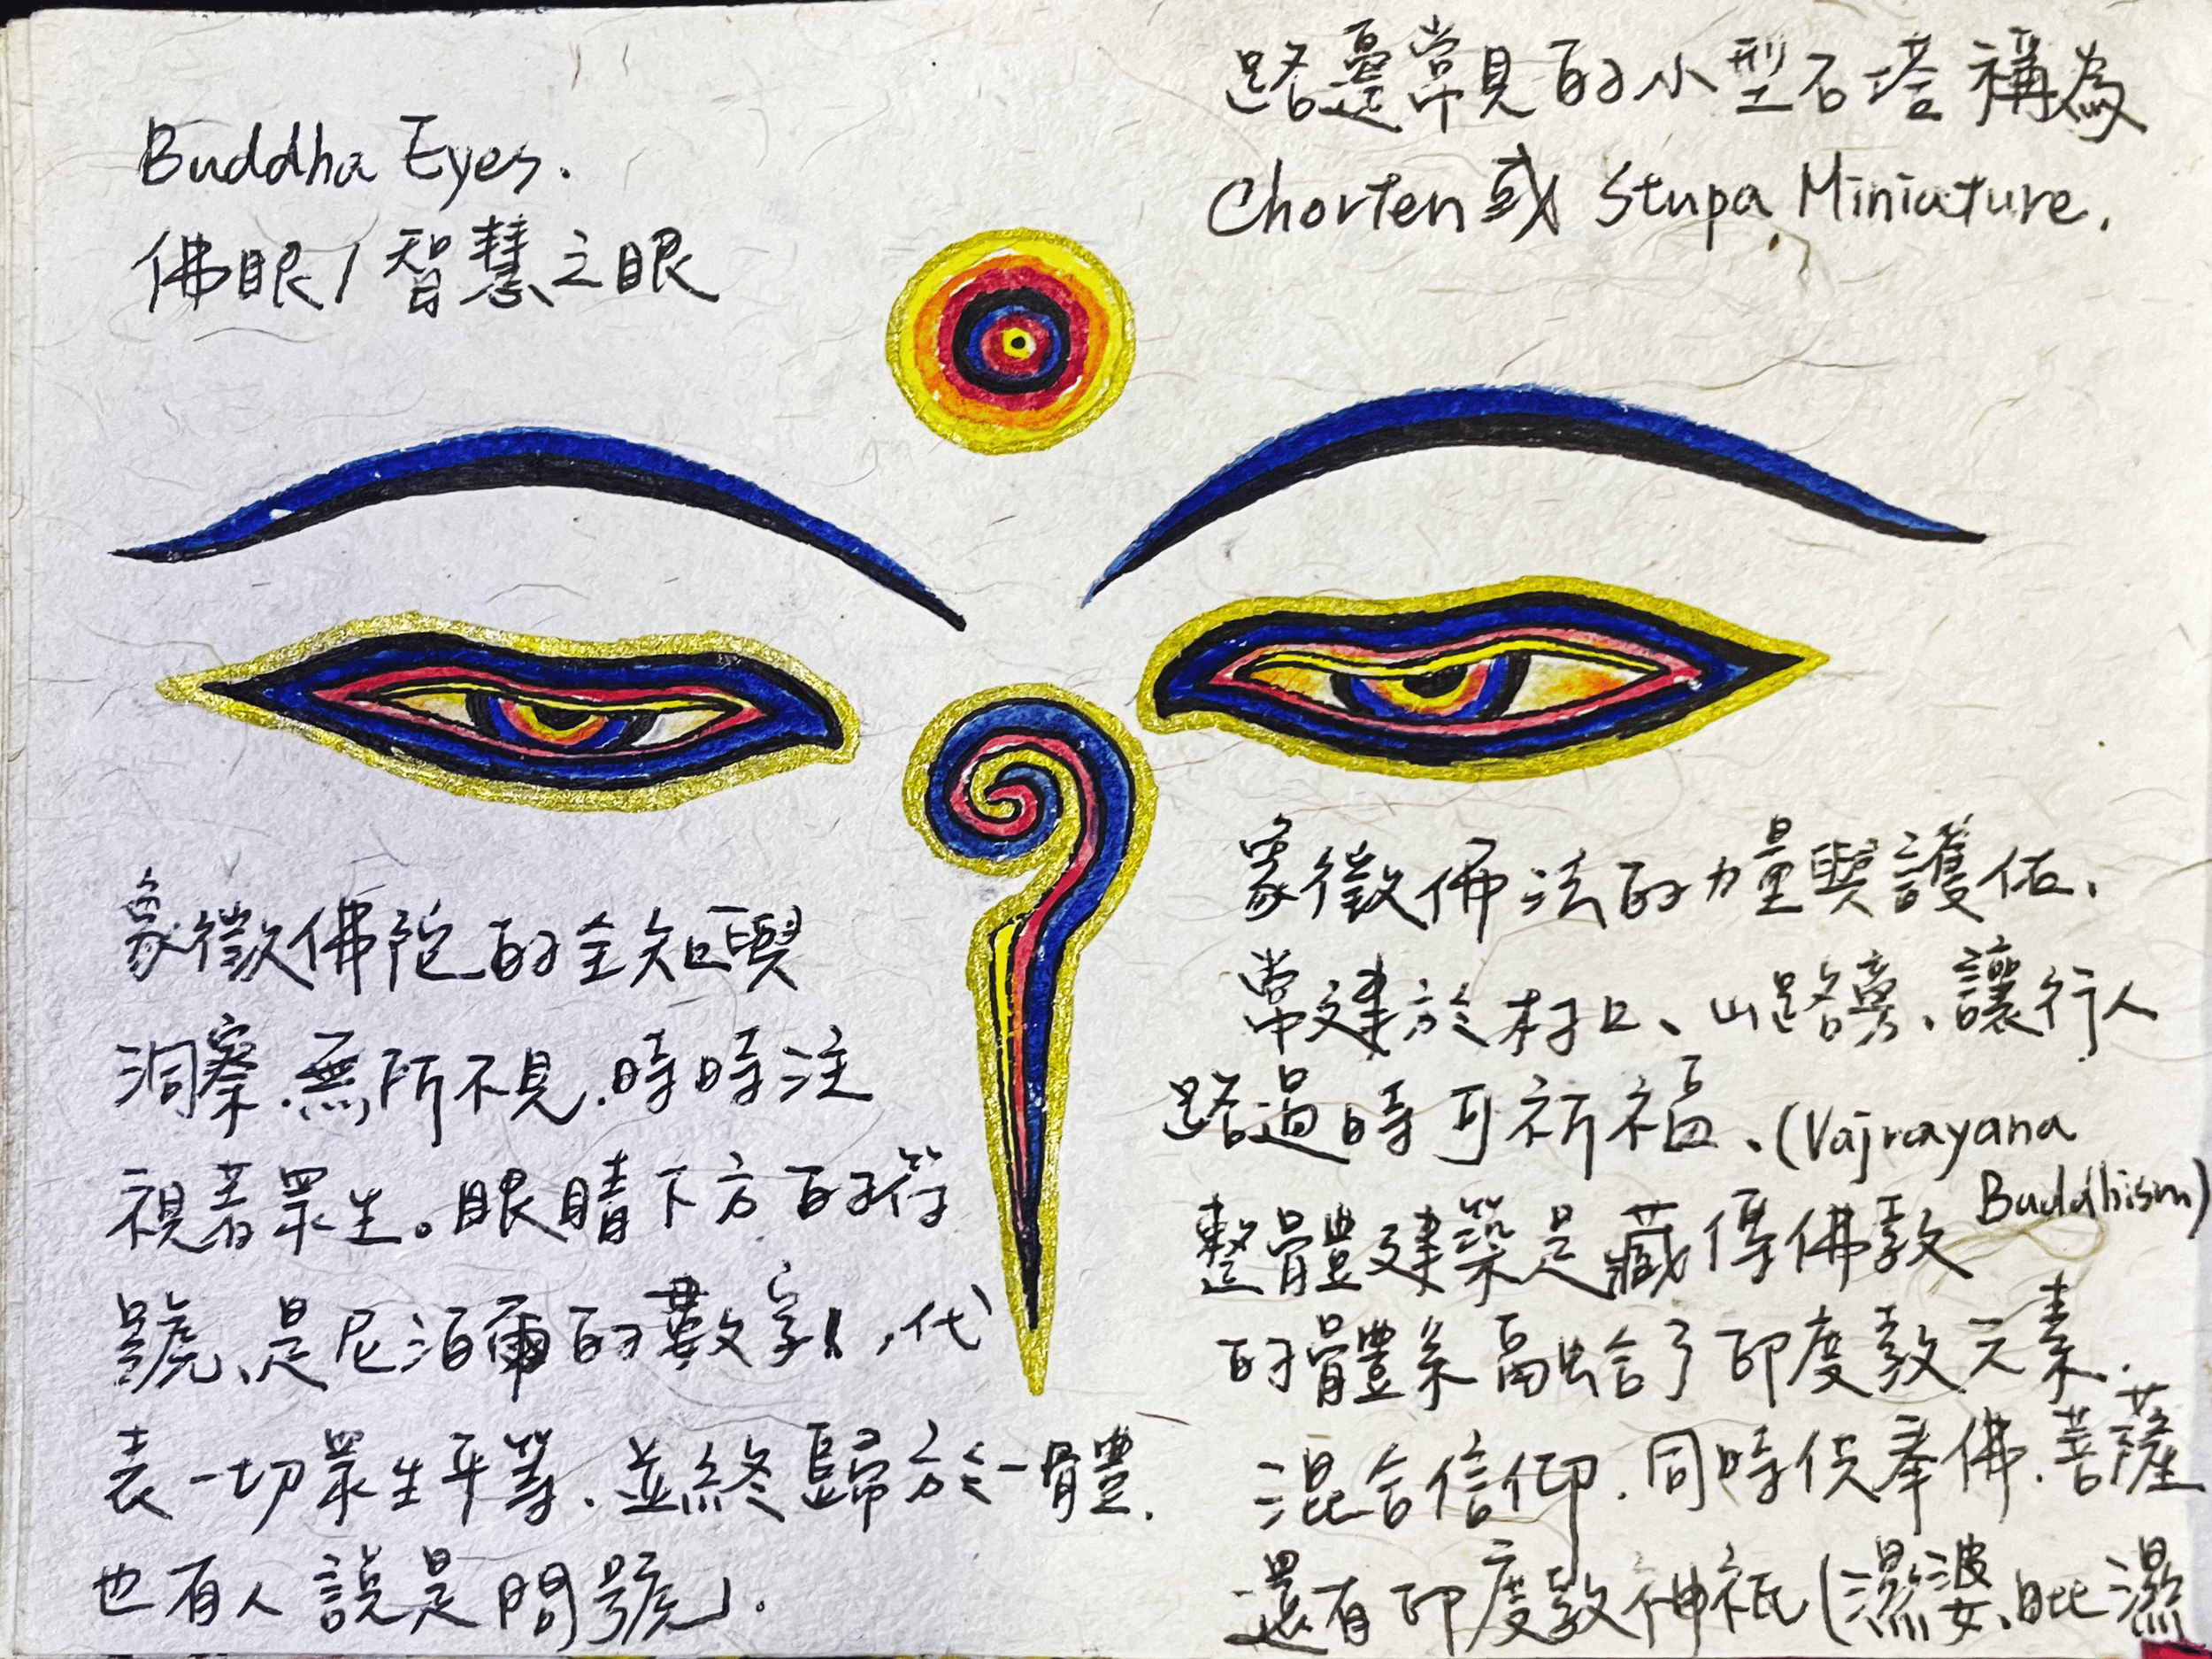 Buddha Eyes.
佛眼/智慧之眼
象徵佛陀的全知與
洞察、無所不見、時時注
視著眾生。眼睛下方的符
號、是尼泊爾的數字1,代
表一切眾生平等、並終歸於一體.
也有人說是問號」.
路邊常見的小型石塔稱為
Chorten或 Stupa Miniature.
象徵佛法的力量與護佑、
常建於村口、山路旁、讓行人
路過時可祈福、(Vajrayana
Buddhism)
整體建築是藏傳佛教
的體系融合了印度教元素.
混合信仰.同時供奉佛.菩薩
還有印度教神祇(濕婆、毗濕